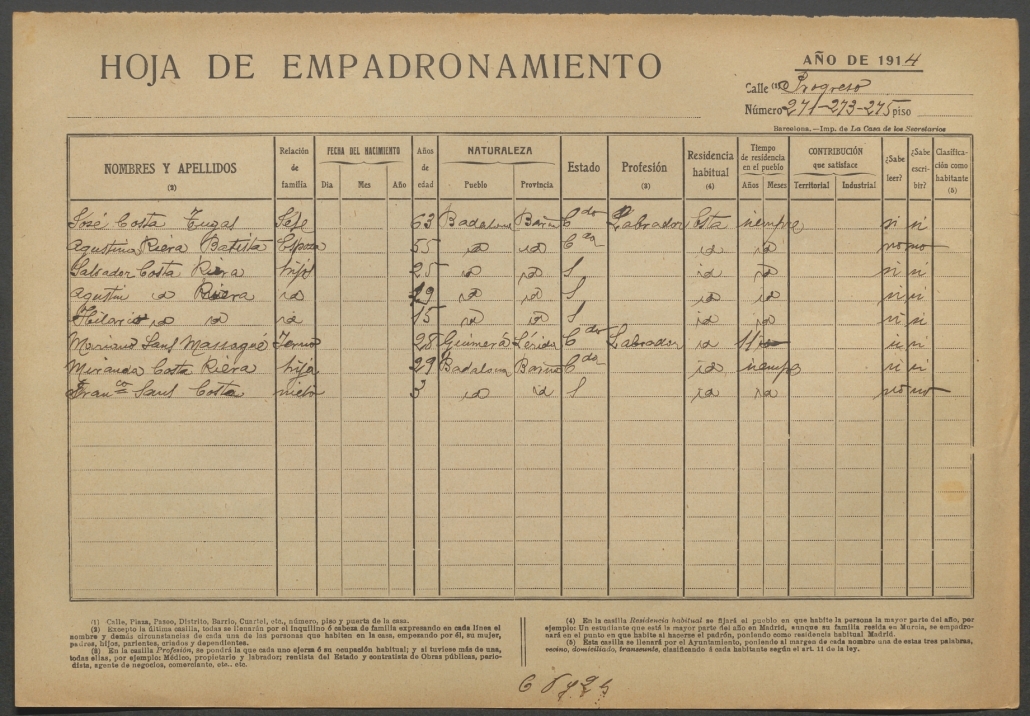 HOJA DE EMPADRONAMIENTO
AÑO DE 1914
Calle (1) Progreso
Número 271-273-275 piso
Barcelona.—Imp. de La Casa de los Secretarios
NOMBRES Y APELLIDOS (2) Relación de familia FECHA DEL NACIMIENTO Día Mes Año Años de edad NATURALEZA Pueblo Provincia Estado Profesión (3) Residencia habitual (4) Tiempo de residencia en el pueblo Años Meses CONTRIBUCIÓN que satisface Territorial Industrial ¿Sabe leer? ¿Sabe escribir? Clasificación como habitante (5)
José Costa Fugas Jefe 63 Badalona Barna Cdo Labrador Esta siempre si si
Agustina Riera Batista Esposa 55 id id Cda id id no no
Salvador Costa Riera hijo 25 id id S id id si si
Agustin id Riera id 19 id id S id id si si
Hilario id id id 15 id id S id id si si
Mariano Sans Massagué Yerno 28 Guimerá Lérida Cdo Labrador id 11 si si
Miranda Costa Riera hija 29 Badalona Barna Cda id siempre si si
Franco Sans Costa nieto 3 id id S id id no no
(1) Calle, Plaza, Paseo, Distrito, Barrio, Cuartel, etc., número, piso y puerta de la casa.
(2) Excepto la última casilla, todas se llenarán por el inquilino ó cabeza de familia expresando en cada línea el
nombre y demás circunstancias de cada una de las personas que habiten en la casa, empezando por él, su mujer,
padres, hijos, parientes, criados y dependientes.
(3) En la casilla Profesión, se pondrá la que cada uno ejerza ó su ocupación habitual; y si tuviese más de una,
todas ellas, por ejemplo: Médico, propietario y labrador; rentista del Estado y contratista de Obras públicas, perio-
dista, agente de negocios, comerciante, etc., etc.
(4) En la casilla Residencia habitual se fijará el pueblo en que habite la persona la mayor parte del año, por
ejemplo: Un estudiante que está la mayor parte del año en Madrid, aunque su familia resida en Murcia, se empadro-
nará en el punto en que habite al hacerse el padrón, poniendo como residencia habitual Madrid.
(5) Esta casilla se llenará por el Ayuntamiento, poniendo al margen de cada nombre una de estas tres palabras,
vecino, domiciliado, transeunte, clasificando á cada habitante según el art. 11 de la ley.